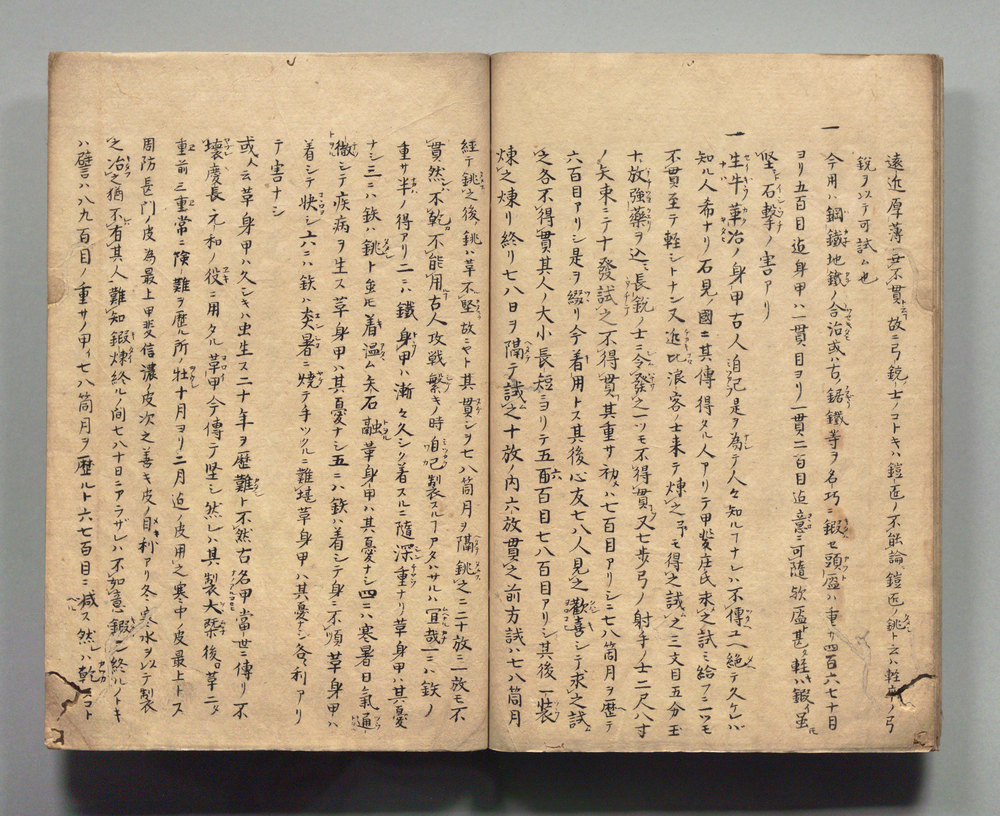 遠近厚薄毋不貫故ニ弓銃士ノコトキハ鎧匠ノ不能論鎧匠ノ銚ト云ハ軽庫ノ弓
銃ヲ以テ可試ム也
一 今用ハ鋼鐵地鐵ノ合冶或ハ古鋸鐵等ヲ名巧ニ鍜セ頭盔ハ重サ四百六七十目
ヨリ五百目迠身甲ハ一貫目ヨリ一貫二百目迠意ニ可隨欤盔甚タ軽ハ鍜イ虽
堅シ石撃ノ害アリ
一 生牛革冶ノ身甲古人自己是ヲ為テ人々知ルヿナレハ不傳ユヱ絶テ久ケレバ
知ル人希ナリ石見ノ國ニ其傳得タル人アリテ甲斐庄氏来之試ミ給フニ一ツモ
不貫至テ軽シトナン又近比浪客ノ士来テ煉之ヿヲ得之試之三文目五分玉
十放強藥ヲ込ミ長銃ノ士ニ令發之一ツモ不得貫又七歩弓ノ射手ノ士二尺八寸
ノ矢束ニテ十發試之不得貫其重サ初メハ七百目アリシニ七八箇月ヲ歴テ
六百目アリシ是ヲ綴リ今着用トス其後心友七八人見之歡喜シテ求之試
之各不得貫其人ノ大小長短ニヨリテ五六百目七八百目アリシ其後一裝
煉之煉リ終リ七八日ヲ隔テ試之十放ノ内六放貫之前方試ハ七八箇月
經テ銚之後銚ハ草不堅故ニヤト其貫シヲ七八箇月ヲ隔銚之ニ二十放ニ一放モ不
貫然ハ不乾不能用古人攻戦繁キノ時自己製スルヿアタハサルハ宜哉一ニハ鉄ノ
重サ半ノ得アリ二ニハ鐵身甲ハ漸々久シク着スルニ隨深重ナリ草身甲ハ其憂
ナシ三ニハ鉄ハ銚ト虽𪜈着温ム矢石融革身甲ハ其憂ナシ四ニハ寒暑日氣通
徹シテ疾病ヲ生ス草身甲ハ其憂ナシ五ニハ鉄ハ着シテ身ニ不順草身甲ハ
着シテ快シ六ニハ鉄ハ炎暑ニ焼テ手ツクルニ難堪草身甲ハ其憂ナシ各利アリ
テ害ナシ
或人云草身甲ハ久シキハ虫生ス二十年ヲ歴難ト不然古名甲當世ニ傳リ不
壊慶長元和ノ役ニ用タル草甲今傳テ堅シ然レハ其製大槩後ロ草二タ
重前三重常ニ険難ヲ歴ル所牡十月ヨリ二月迠ノ皮用之寒中ノ皮最上トス
周防長門ノ皮為最上甲斐信濃ノ皮次之善キ皮ノ目キ利アリ冬寒水ヲ以テ製
之冶之猶不有其人難知鍜煉終ルノ间七八十日ニアラザレハ不如意鍜ニ終ルノトキ
ハ譬ハ八九百目ノ重サノ甲ィ七八箇月ヲ歴ルト六七百目ニ减ス然レハ乾コト